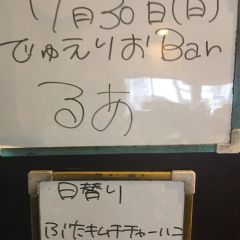 月30日(日)
でゅえりおBar
るあ
日替り
ぶたキムチチャーハン